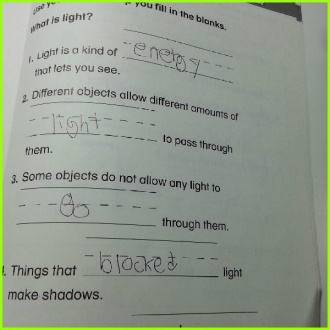 you fill in the blanks.
What is light?
1. Light is a kind of energy
that lets you see.
2. Different objects allow different amounts of
light
to pass through
them.
3. Some objects do not allow any light to
Go
through them.
. Things that blocked light
make shadows.